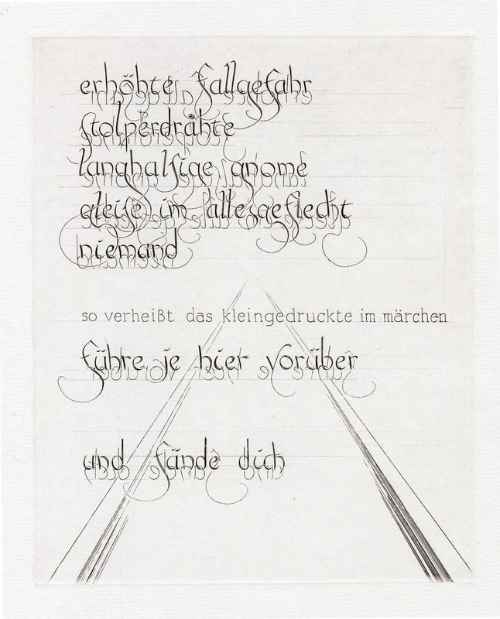 erhöhte fallgefahr
stolperdrähte
langhalsige gnome
gleise im allesgeflecht
niemand
so verheißt das kleingedruckte im märchen
führe je hier vorüber
und fände dich